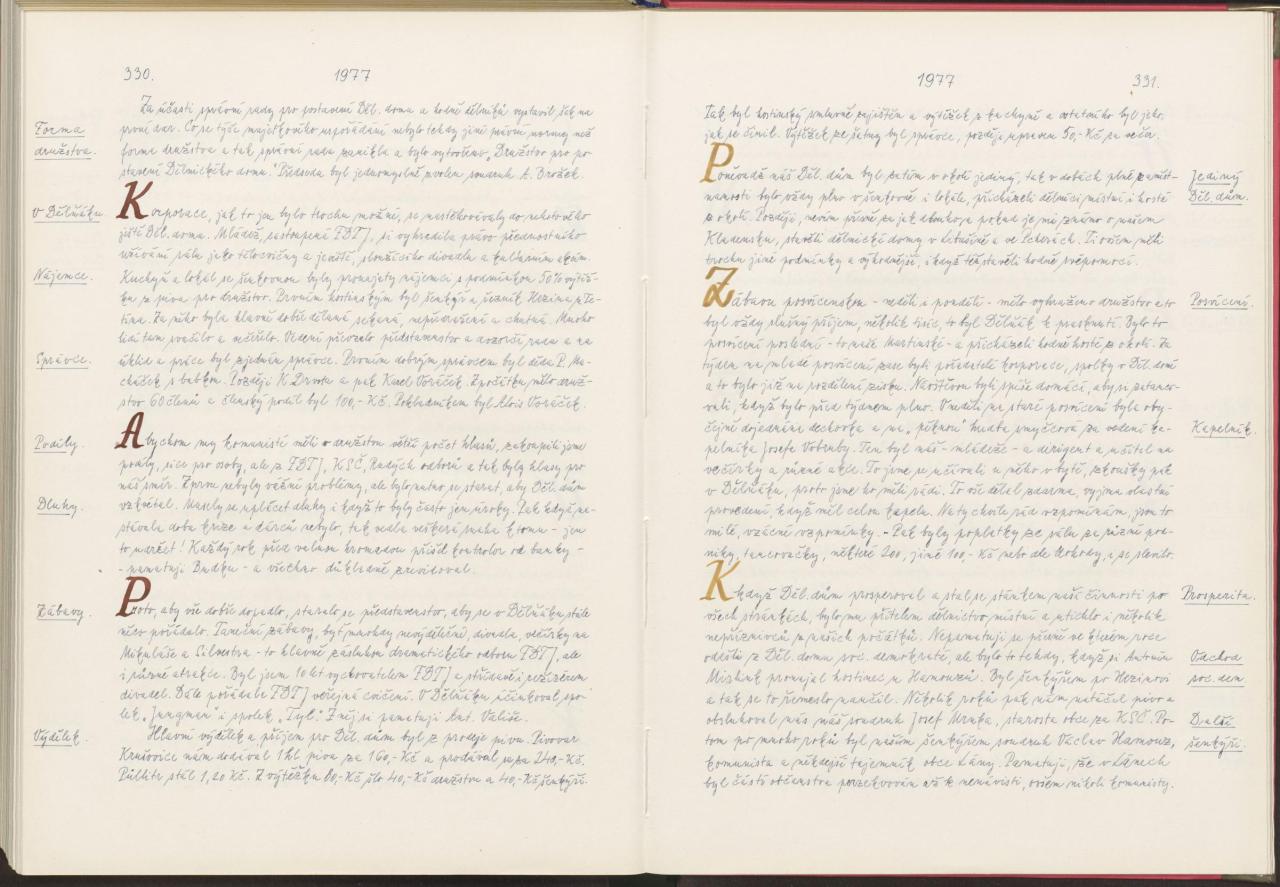 330. 1977
Za účasti správní rady pro postavení Děl. domu a hodně dělníků vystavil šek na
první dar. Co se týče majetkového uspořádání nebylo tehdy jiné právní normy než
Forma
družstva.
forma družstva a tak správní rada zanikla a bylo vytvořeno „Družstvo pro po-
stavení Dělnického domu." Předseda byl jednomyslně zvolen soudruh A. Brožek.
V Dělňáku.
Korporace, jak to jen bylo trochu možné, se nastěhovávaly do nehotového
ještě Děl. domu. Mládež, zastoupená FDTJ, si vyhradila právo přednostního
užívání sálu jako tělocvičny a jeviště, sloužícího divadlu a kulturním akcím.
Nájemce.
Kuchyň a lokál se šenkovnou byly pronajaty nájemci s podmínkou 50% výtěž-
ku z piva pro družstvo. Prvním hostinským byl šenkýř a řezník Hezina z Te-
tína. Za něho byla hlavně dobře dělaná sekaná, nepřidražená a chutná. Mnoho
lidí tam svačilo a večeřelo. Vedení převzalo představenstvo a dozorčí rada a na
Správce.
úklid a práce byl zjednán správce. Prvním dobrým správcem byl děda P. Ma-
cháček s babkou. Později V. Drvota a pak Karel Voráček. Zpočátku mělo druž-
stvo 60 členů a členský podíl byl 100,-Kč. Pokladníkem byl Alois Voráček.
Podíly.
Abychom my komunisté měli v družstvu větší počet hlasů, zakoupili jsme
podíly, sice pro osoby, ale z FDTJ, KSČ, Rudých odborů a tak byly hlasy pro
náš směr. Zprvu nebyly vážné problémy, ale bylo nutno se starat, aby Děl. dům
Dluhy.
vzkvétal. Musely se uplácet dluhy i když to byly často jen úroky. Pak když na-
stávala doba krize a dárců nebylo, tak vedla veškerá snaha k tomu - jen
to udržet! Každý rok před valnou hromadou přišel kontrolor od banky -
- pamatuji Budku - a všechno důkladně zrevidoval.
Zábavy.
Proto, aby vše dobře dopadlo, staralo se představenstvo, aby se v Dělňáku stále
něco pořádalo. Taneční zábavy, byť mnohdy nevýdělečné, divadla, večírky na
Mikuláše a Silvestra - to hlavně zásluhou dramatického odboru FDTJ, ale
i různé atrakce. Byl jsem 10 let vychovatelem FDTJ a střídavě i režisérem
divadel. Dále pořádalo FDTJ veřejná cvičení. V Dělňáku účinkoval spo-
lek „Jungman" i spolek „Tyl". Z něj si pamatuji Ant. Vališe.
Výdělek.
Hlavní výdělek a příjem pro Děl. dům byl z prodeje piva. Pivovar
Krušovice nám dodával 1 hl piva za 160,-Kč a prodával se za 240,-Kč.
Půllitr stál 1,20 Kč. Z výtěžku 80,-Kč šlo 40,-Kč družstvu a 40,-Kč šenkýři.
1977 331.
Tak byl hostinský smluvně zajištěn a výtěžek z kuchyně a ostatního byl jeho,
jak se činil. Výtěžek ze šatny byl správce, později upraven 50,-Kč za večer.
Jediný
Děl. dům.
Poněvadž náš Děl. dům byl zatím v okolí jediný, tak v dobách plné zaměst-
nanosti bylo vždy plno v šenkovně i lokále, přicházeli dělníci místní i hosté
z okolí. Později, nevím přesně za jak dlouho, a pokud je mi známo o našem
Kladensku, stavěli dělnické domy v Libušíně a ve Tchořích. Ti ovšem měli
trochu jiné podmínky a výhodnější, i když též stavěli hodně svépomocí.
Posvícení.
Zábavu posvícenskou - neděli a pondělí - mělo vyhraženo družstvo a to
byl vždy slušný příjem, několik tisíc, to byl Dělňák k prasknutí. Bylo to
posvícení poslední - to naše Martinské - a přicházeli hodně hosté z okolí. Za
týden na mladé posvícení zase byli pořadateli korporace, spolky v Děl. domě
a to bylo již na rozdělení zisku. Návštěvou byli spíše domácí, aby si zatanco-
vali, když bylo před týdnem plno. V neděli na staré posvícení byla oby-
Kapelník.
čejně dojednána dechovka a na „pěknou" hudba smyčcová za vedení ka-
pelníka Josefa Votruby. Ten byl náš - mládeže - a dirigent a učitel na
večírky a různé akce. To jsme se učívali u něho v bytě, zkoušky pak
v Dělňáku, proto jsme ho měli rádi. To vše dělal zdarma, vyjma vlastní
provedení, když měl celou kapelu. Na ty chvíle rád vzpomínám, jsou to
milé, vzácné vzpomínky. - Pak byly poplatky ze sálu za různé pod-
niky, tancovačky, některé 200, jiné 100,-Kč nebo dle dohody, i se slevilo.
Prosperita.
Když Děl. dům prosperoval a stal se stánkem naší činnosti po
všech stránkách, bylo mu přítelem dělnictvo místní a utichlo i několik
nepříznivců z našich počátků. Nepamatuji se přesně ve kterém roce
Odchod
soc. dem.
odešli z Děl. domu soc. demokraté, ale bylo to tehdy, když si Antonín
pronajal hostinec u Hamouzů. Byl šenkýřem po Hezinovi
a tak se to řemeslo naučil. Několik roků pak nám natáčel pivo a
Další
šenkýři.
obsluhoval nás náš soudruh Josef Mruha, starosta obce za KSČ. Po-
tom po mnoho roků byl naším šenkýřem soudruh Václav Hamouz,
komunista a někdejší tajemník obce Lány. Pamatuji, že v Lánech
byl částí občanstva považován až k nenávisti, ovšem nikoli komunisty.